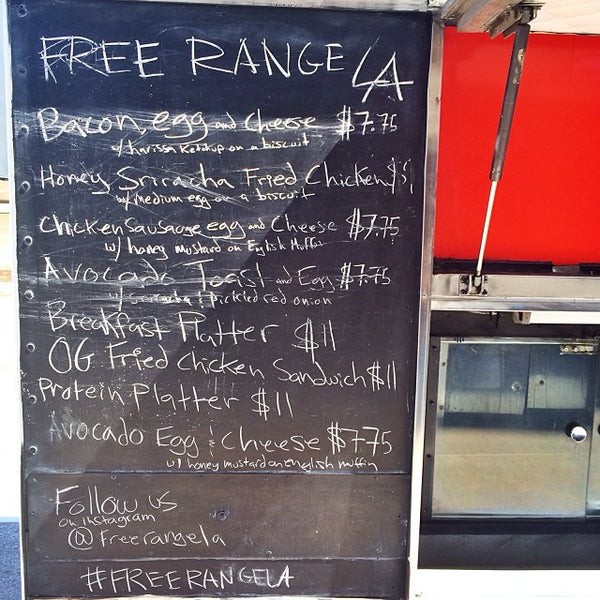 FREE RANGE LA
Bacon, egg and Cheese $7.75
w/ harissa Ketchup on a biscuit
Honey Sriracha Fried Chicken $
w/ medium egg on a biscuit
Chicken Sausage egg and Cheese $7.75
w/ honey mustard on English Muffin
Avocado Toast and Egg $7.75
w/ Sriracha & pickled red onion
Breakfast Platter $11
OG Fried Chicken Sandwich $11
Protein Platter $11
Avocado Egg & Cheese $7.75
w/ honey mustard on english muffin
Follow us
on instagram
@Freerangela
#FREERANGELA